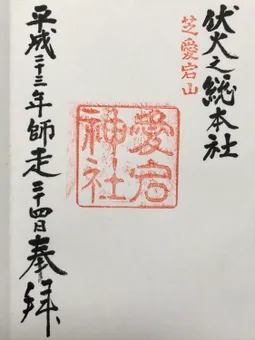 伏火之総本社
芝愛宕山
愛宕神社
平成二十三年師走二十四日奉拝